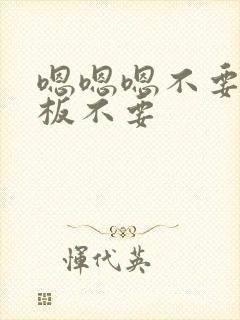 嗯嗯嗯不要
板不要
惲代英